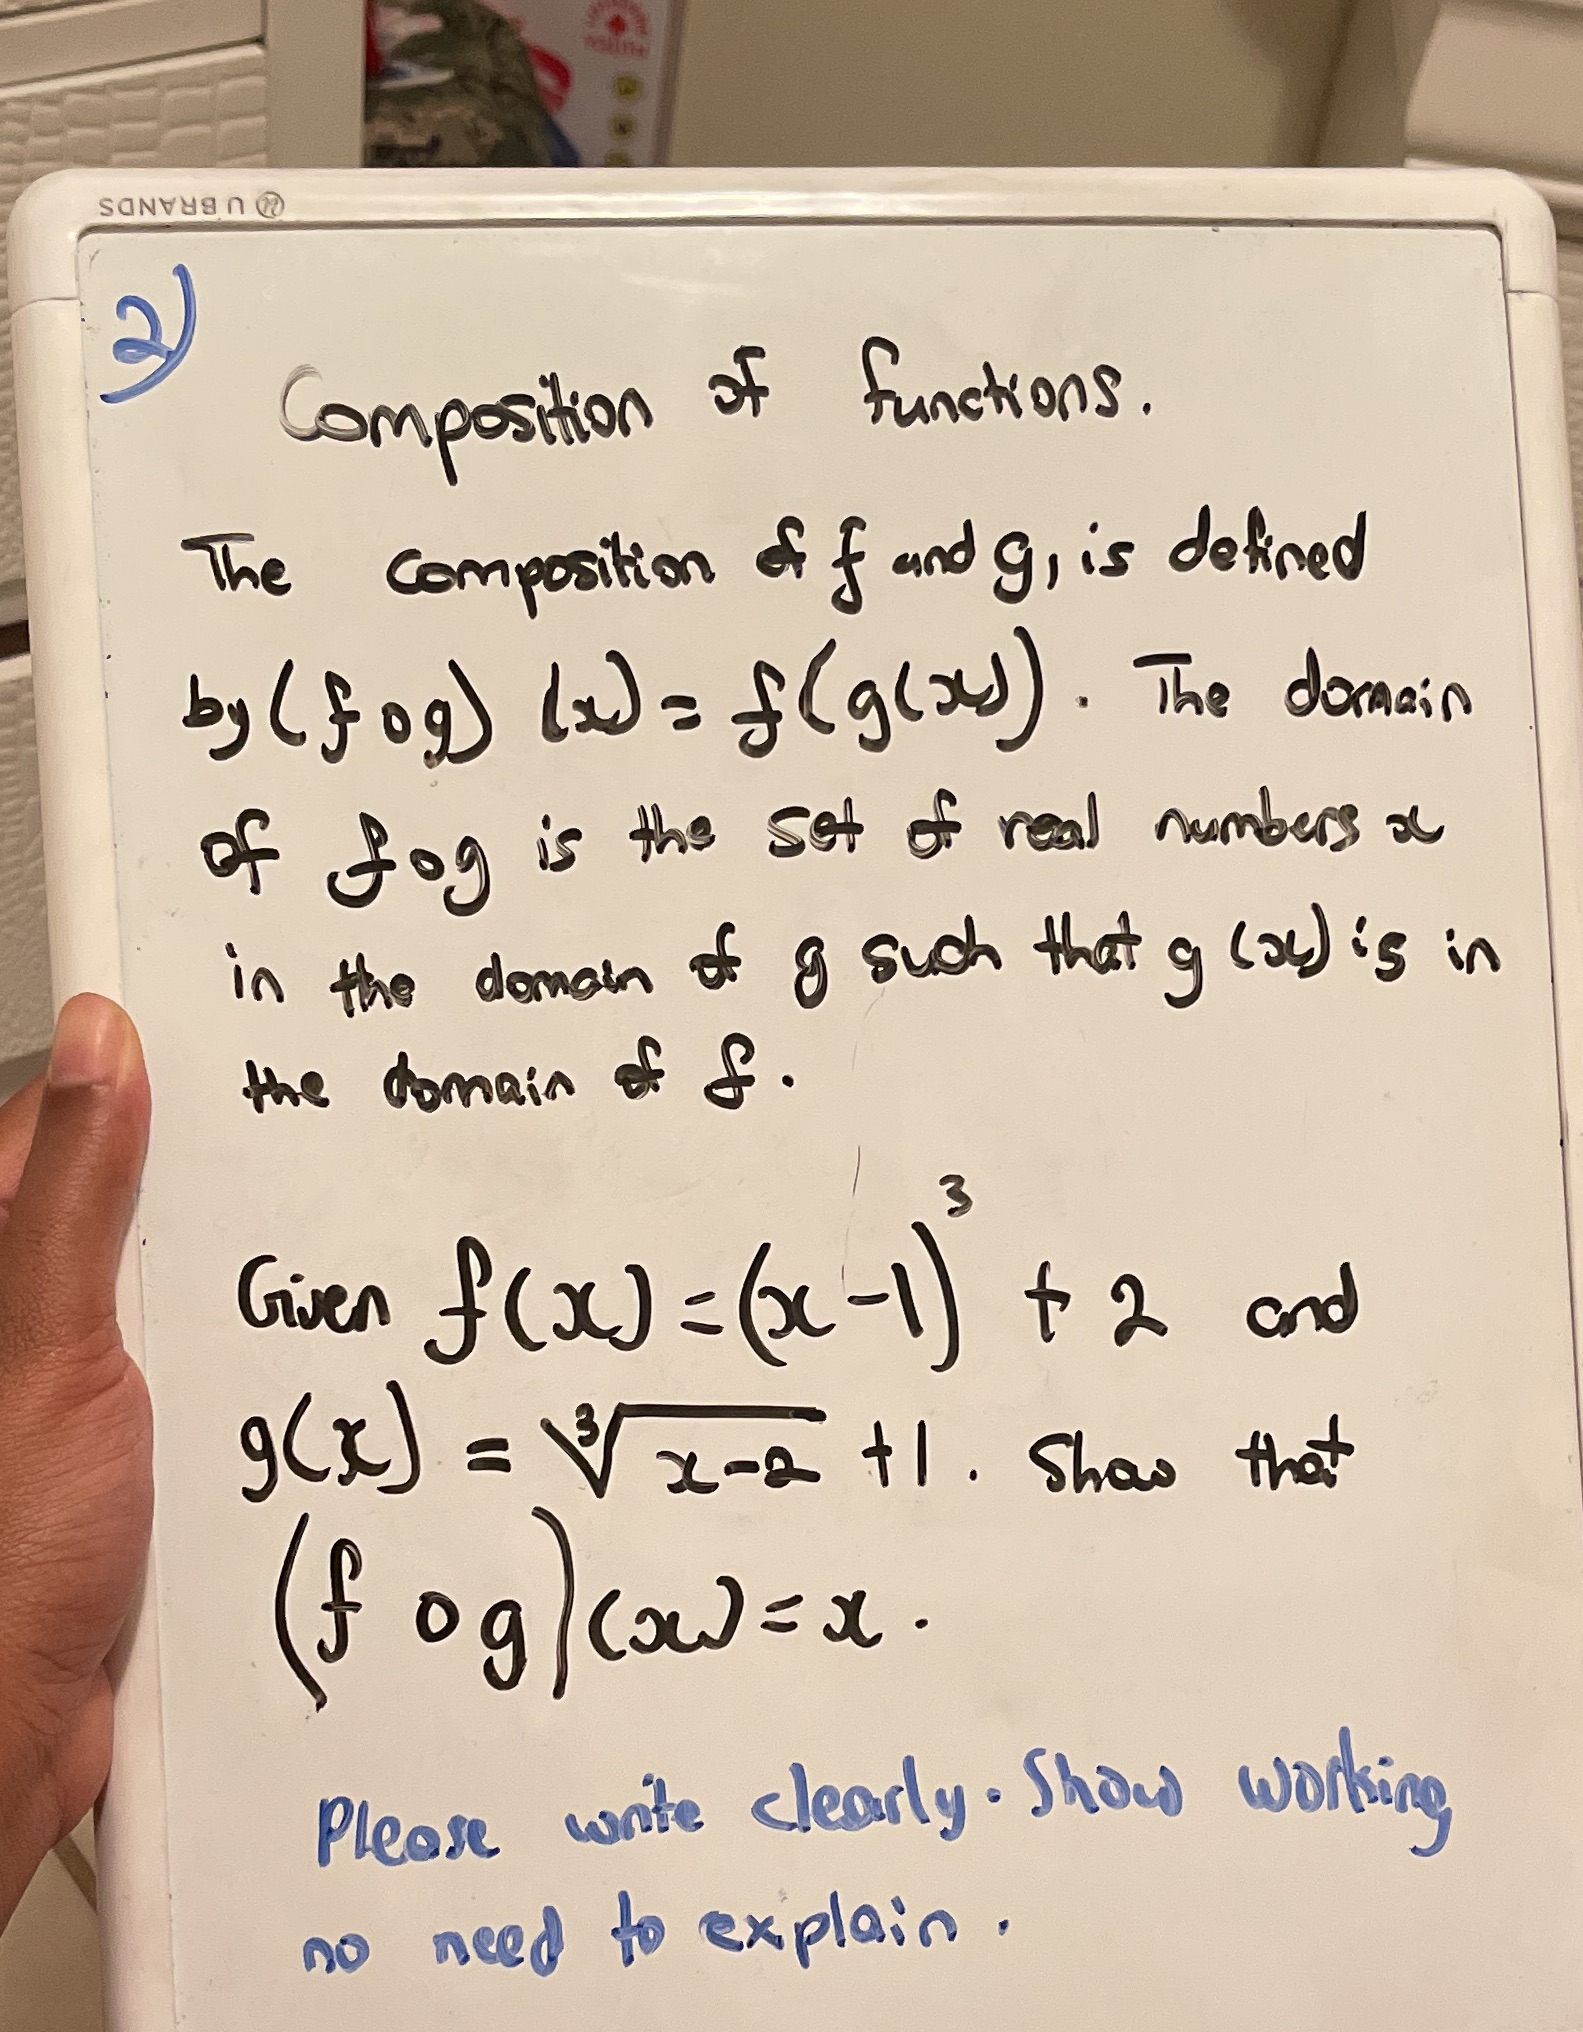 U BRANDS
2)
Composition of functions.
The composition of f and g, is defined
by (f o g) (x) = f(g(x)). The domain
of f o g is the set of real numbers x
in the domain of g such that g (x) is in
the domain of f.
Given f(x) = (x - 1)³ + 2 and
g(x) = ∛(x-2) + 1. Show that
(f o g)(x) = x.
Please write clearly. Show working
no need to explain.